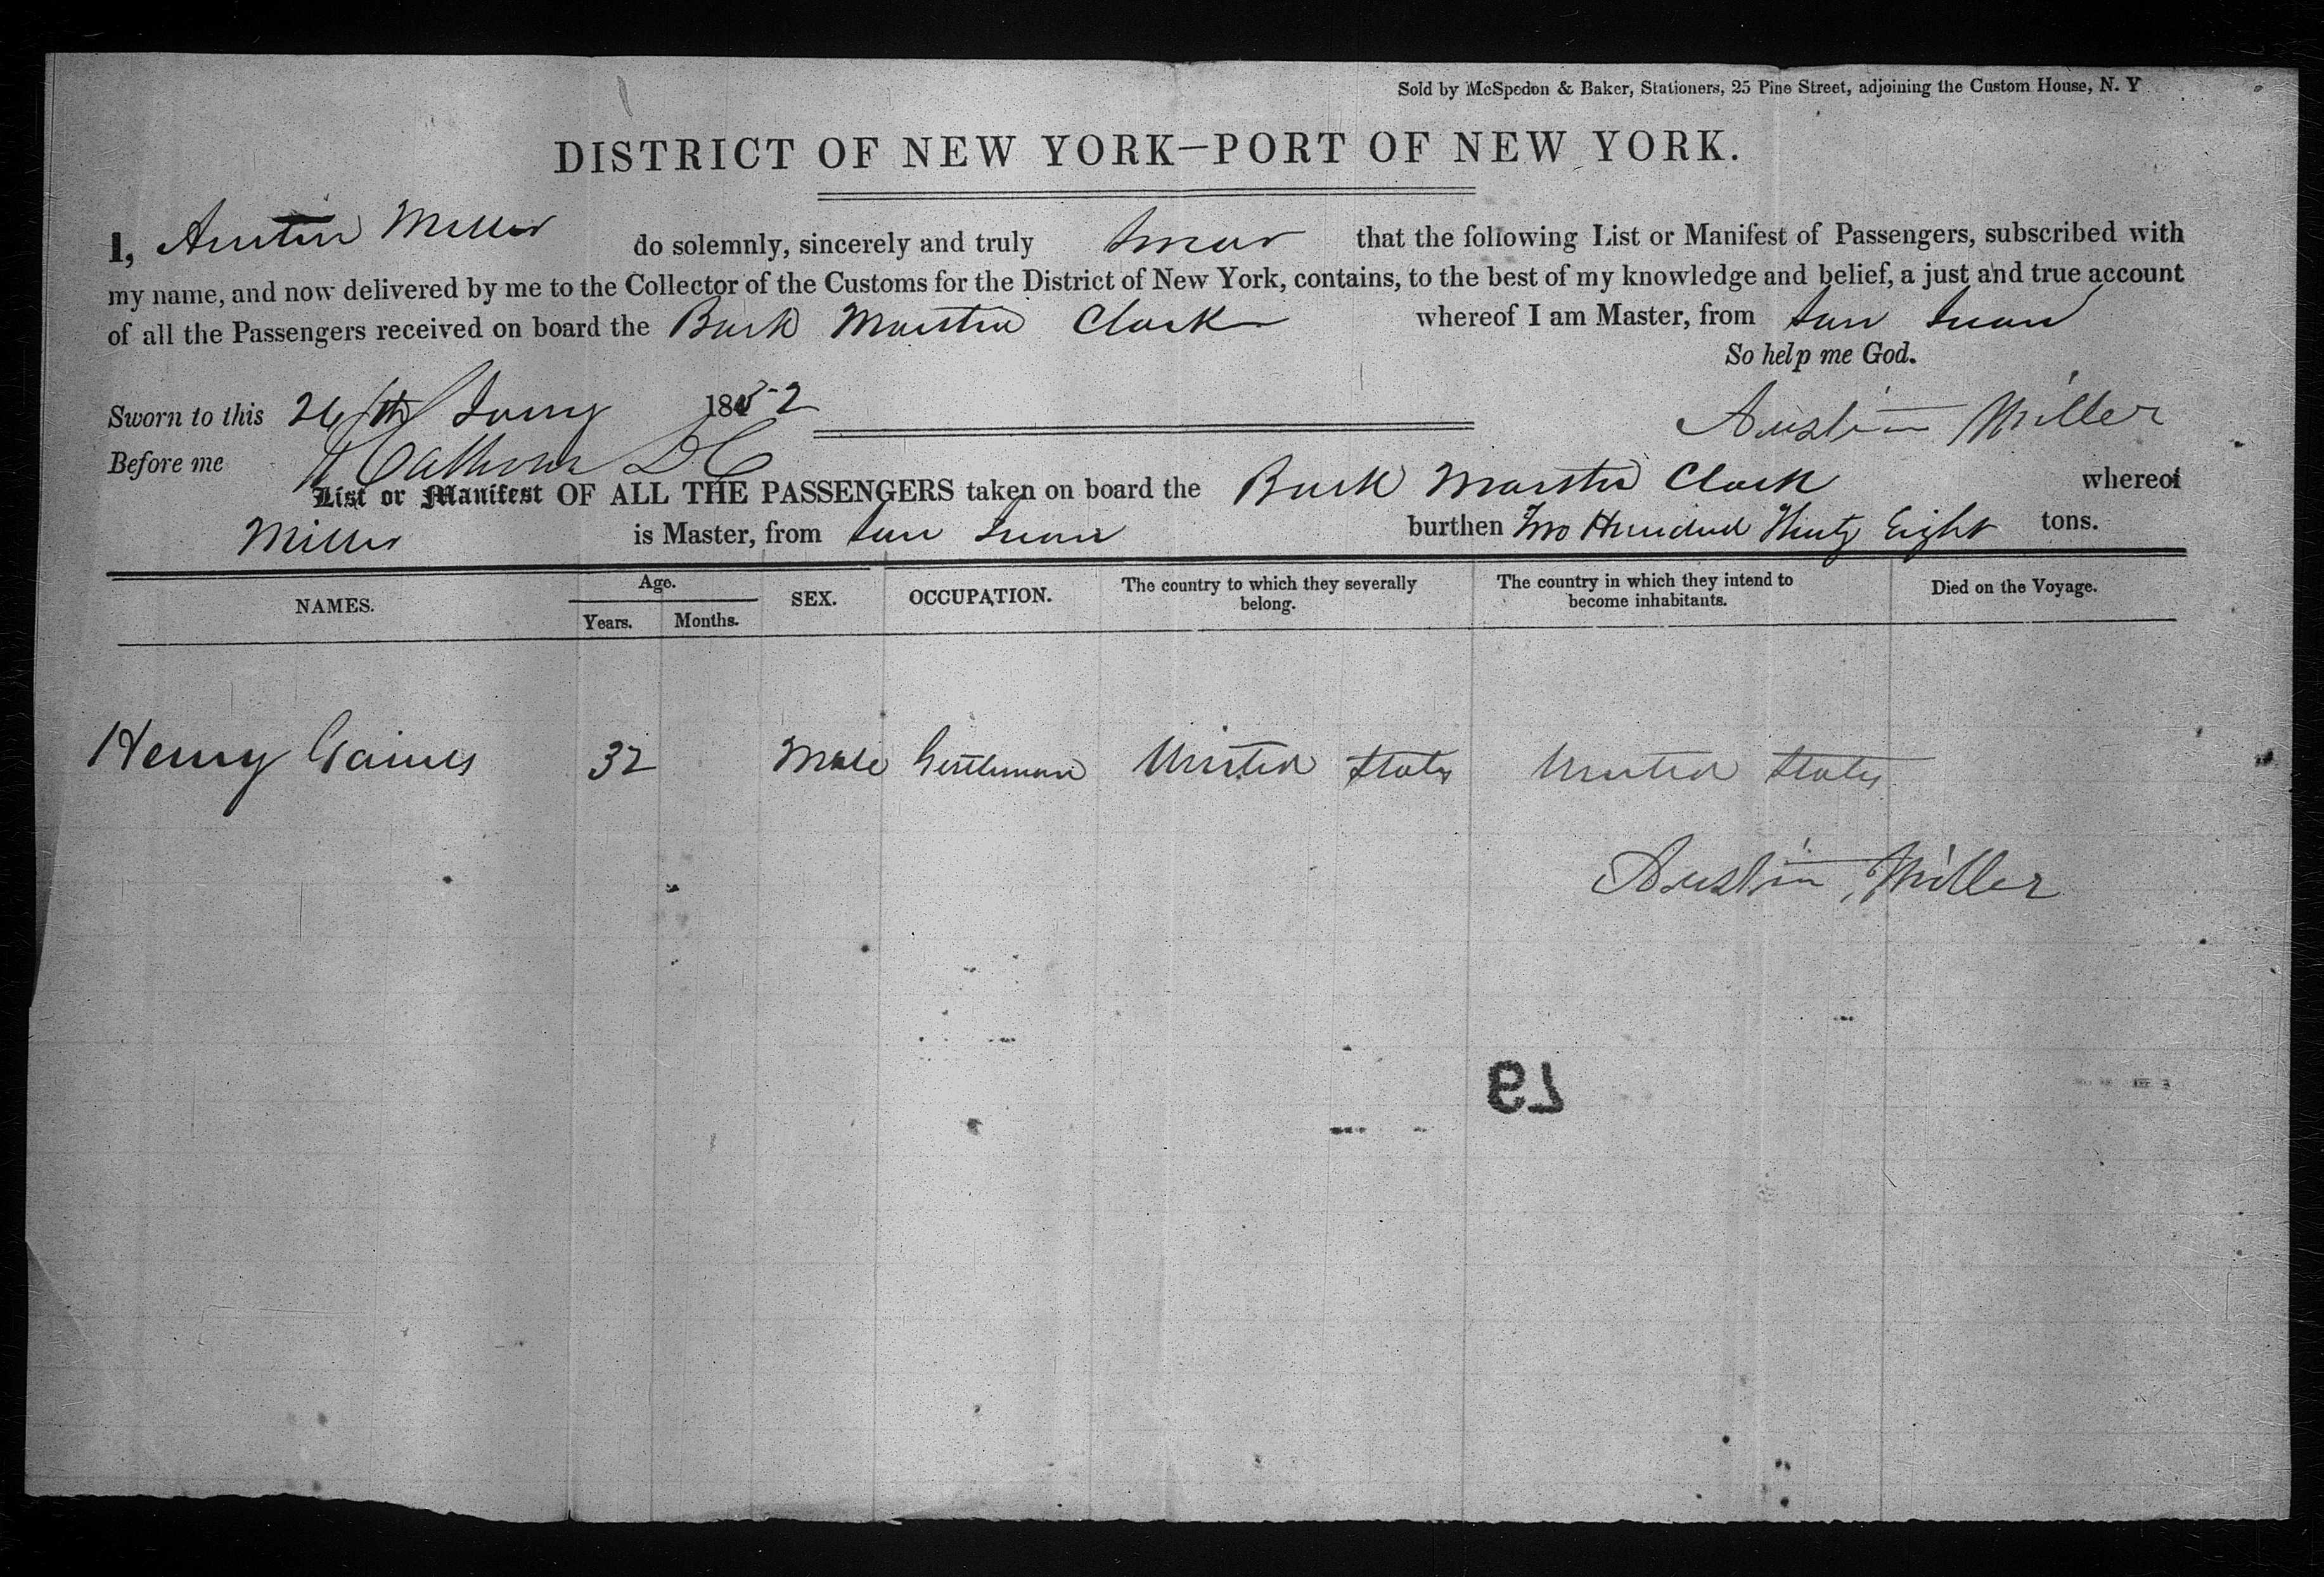 Sold by McSpedon & Baker, Stationers, 25 Pine Street, adjoining the Custom House, N. Y
DISTRICT OF NEW YORK—PORT OF NEW YORK.
I, Austin Miller do solemnly, sincerely and truly swear that the following List or Manifest of Passengers, subscribed with
my name, and now delivered by me to the Collector of the Customs for the District of New York, contains, to the best of my knowledge and belief, a just and true account
of all the Passengers received on board the Bark Martha Clark whereof I am Master, from San Juan
So help me God.
Sworn to this 26th Jany 1852
Austin Miller
Before me Calhoun D C
List or Manifest OF ALL THE PASSENGERS taken on board the Bark Martha Clark whereof
Miller is Master, from San Juan burthen Two Hundred Thirty Eight tons.
NAMES. Age. Years. Months. SEX. OCCUPATION. The country to which they severally belong. The country in which they intend to become inhabitants. Died on the Voyage.
Henry Gaines 32 Male Gentleman United States United States
Austin Miller
79